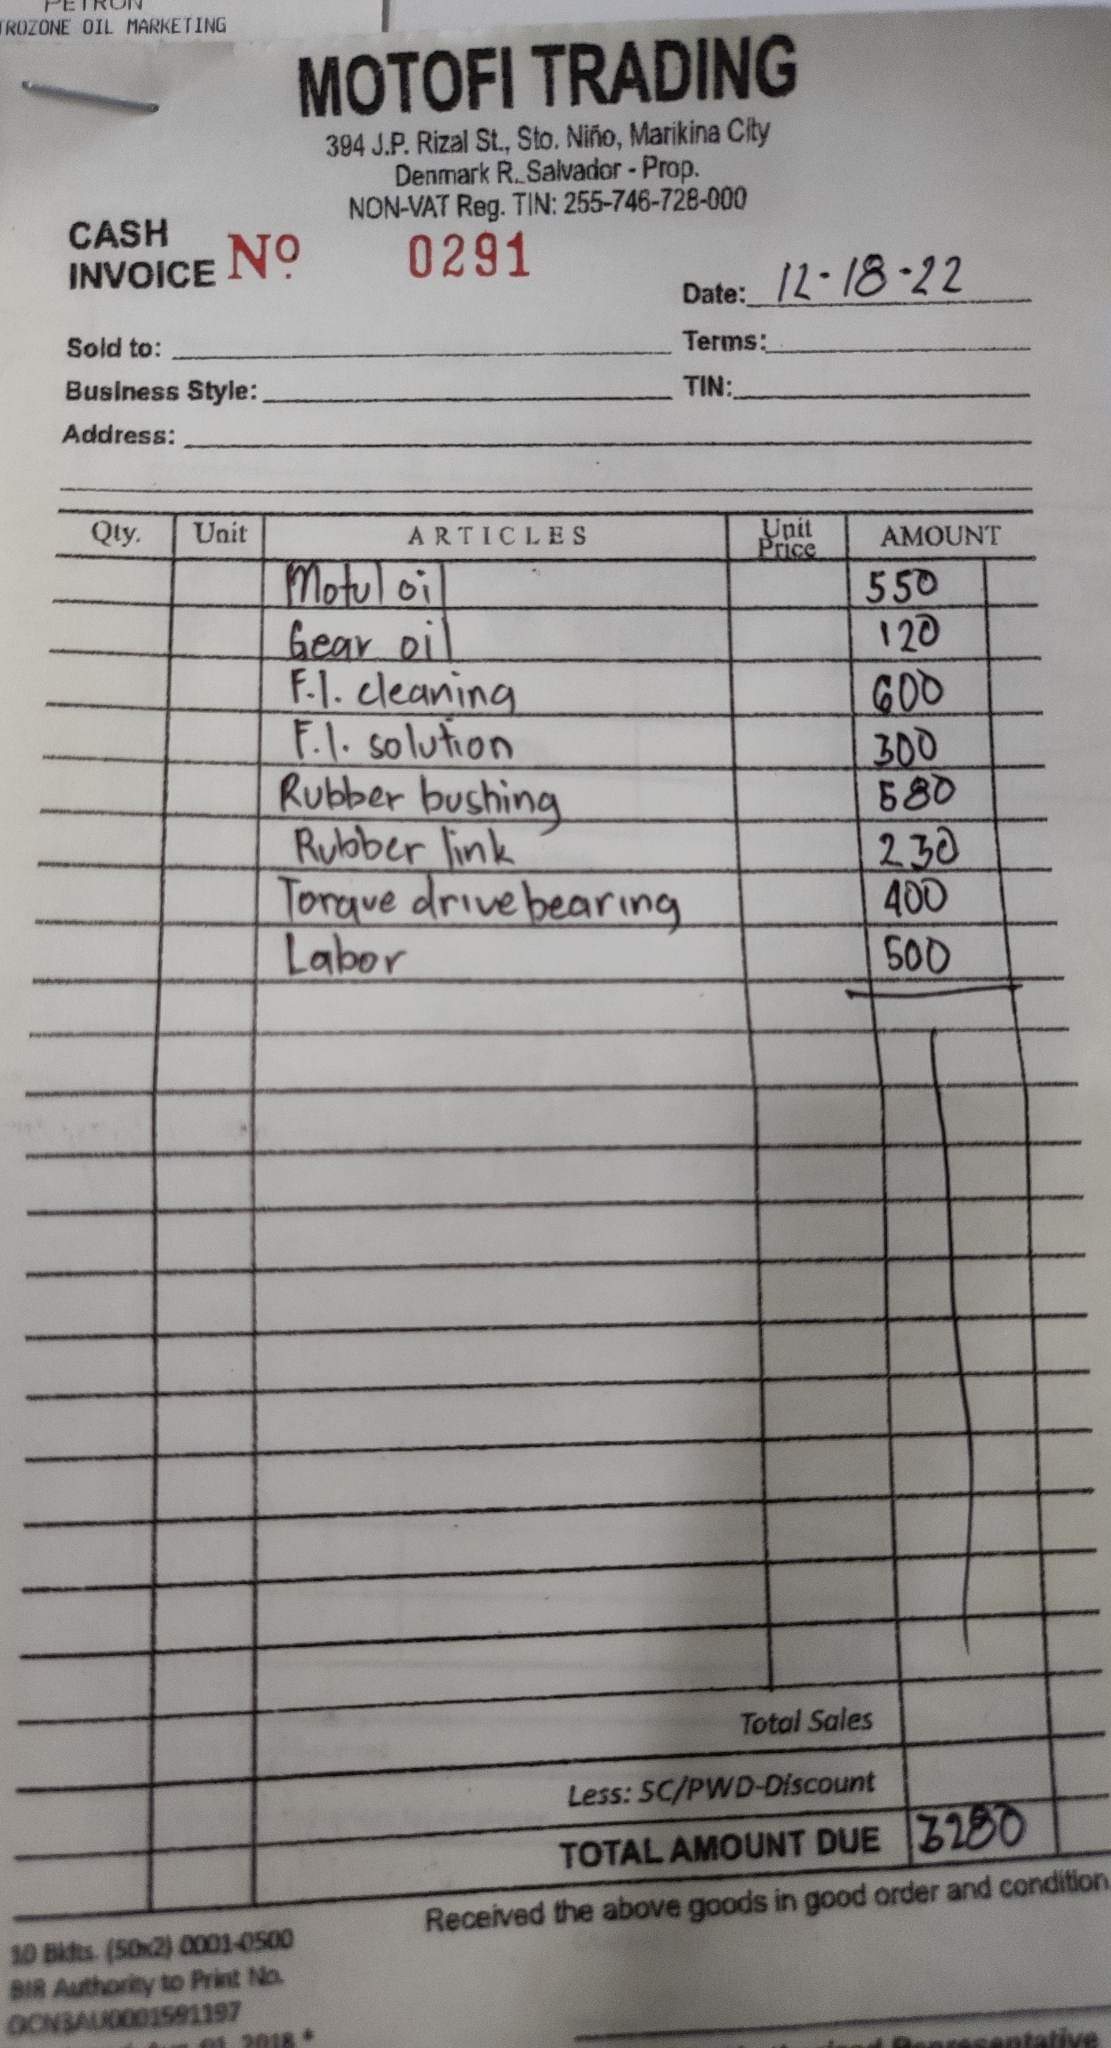 PETRON
TROZONE OIL MARKETING
MOTOFI TRADING
394 J.P. Rizal St., Sto. Niño, Marikina City
Denmark R. Salvador - Prop.
NON-VAT Reg. TIN: 255-746-728-000
CASH INVOICE Nº 0291
Date: 12-18-22
Sold to: Terms:
Business Style: TIN:
Address:
Qty. Unit ARTICLES Unit Price AMOUNT
Motul oil 550
Gear oil 120
F.I. cleaning 600
F.I. solution 300
Rubber bushing 580
Rubber link 230
Torque drive bearing 400
Labor 500
Total Sales
Less: SC/PWD-Discount
TOTAL AMOUNT DUE 3280
Received the above goods in good order and condition
10 Bklts. (50x2) 0001-0500
BIR Authority to Print No.
OCN3AU0001591197
01, 2018 *
Representative